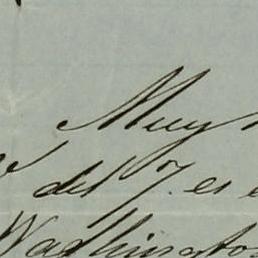 Muy
del 7. es
Washington